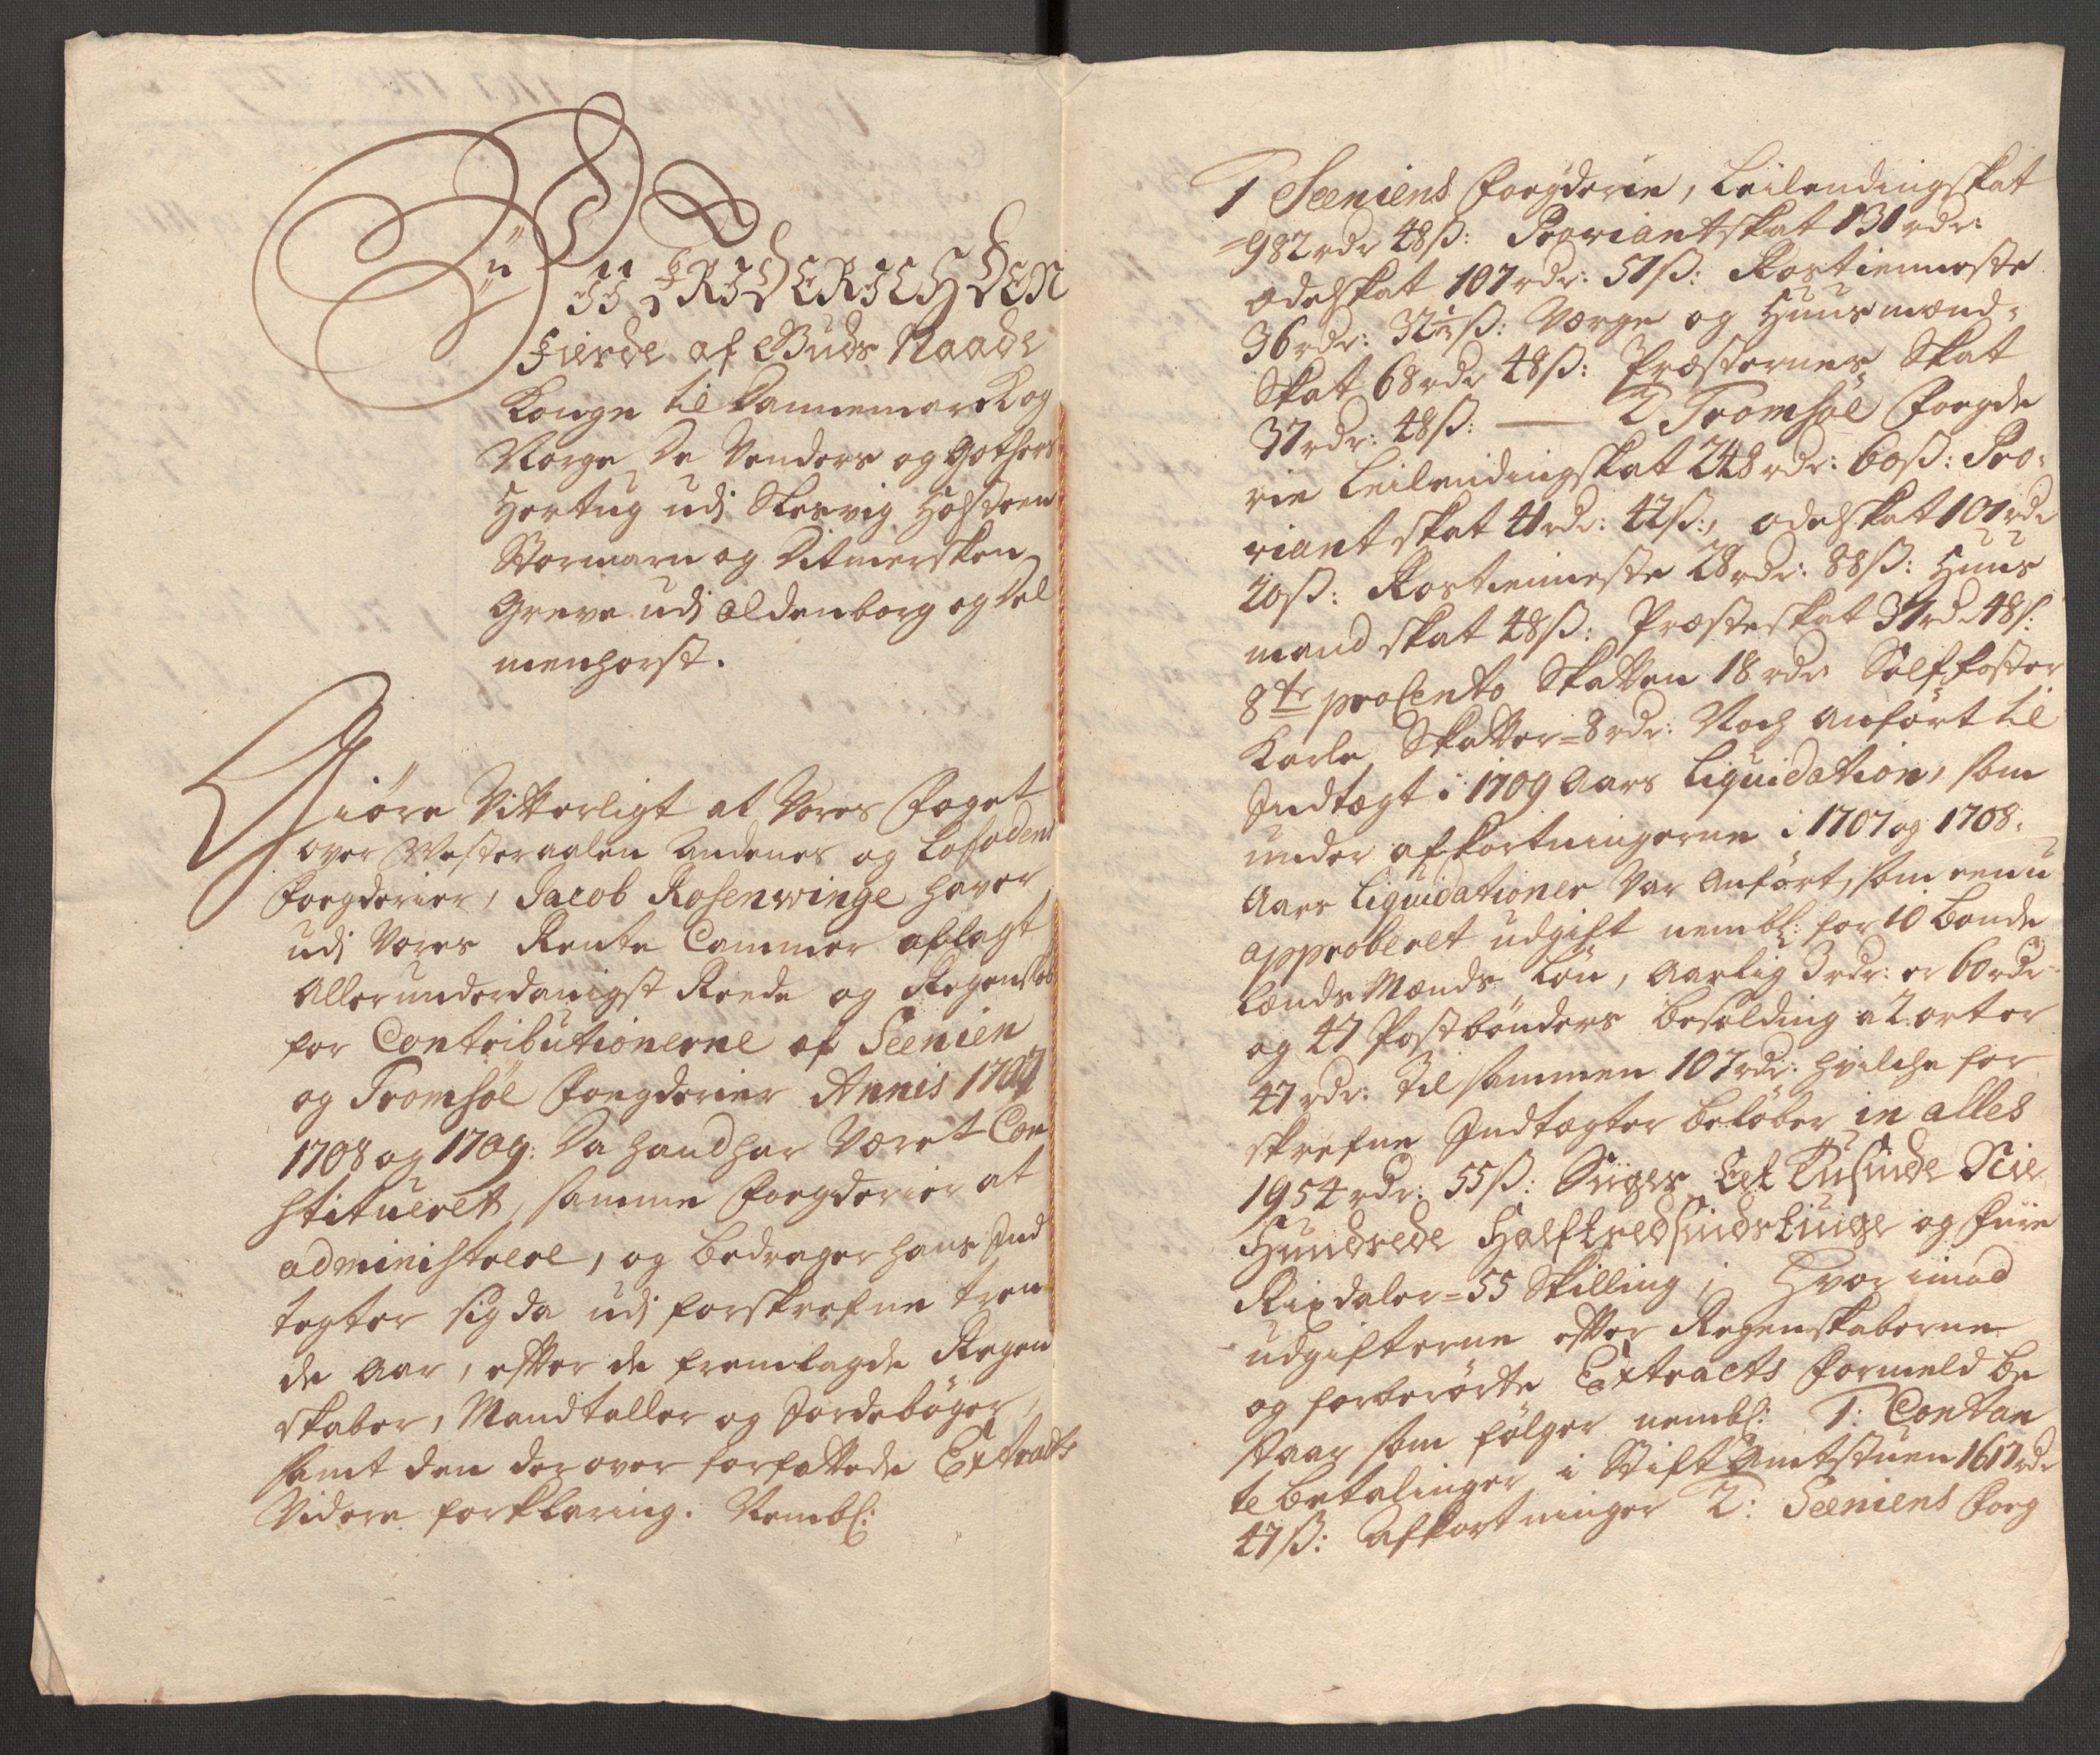 Wii FRIDERICH DEN
Fierde af Guds Naade
Konge til Dannemarck og
Norge De Venders og Gothers
Hertug udj Slesvig Holsteen
Stormarn og Ditmersken
Greve udj Oldenborg og Del
menhorst.
Giöre Vitterligt at Vores Foget
over Westeraalen Andenes og Lofodens
Foegderier, Jacob Rosenwinge haver
udj Vores Rente Cammer aflagt
Allerunderdanigst Reede og Regenskab
for Contributionerne af Seenien
og Tromsöe Foegderier Annis 1707
1708 og 1709: Da hand har Været Con
stitueret, samme Foegderier at
administrere, og bedrager hans Ind
tegter sig da udj forskrefne tren
de Aar, efter de fremlagde Regen
skaber, Mandtaller og Jordeböger,
samt den derover forfattede Extracts
Videre forklaring. Nembl:
1 Seeniens Foegderie, Leilendingskat
=982 rdr 48 ß: Proviantskat 131 rdr:
Odelskat 107 rdr: 51 ß: Rostienneste
36 rdr: 32½ ß: Vorge og Huusmænd=
Skat 68 rdr 48 ß: Præsternes Skat
37 rdr: 48 ß: — 2 Tromsöe Foegde
rie Leilendingskat 248 rdr: 60 ß: Pro=
viantskat 41 rdr: 42 ß:, Odelskat 101 rdr
20 ß: Rostienneste 28 rdr: 88 ß: Huus
mand skat 48 ß: Præsteskat 37 rdr 48 ß:
8te proCento Skatten 18 rdr Sölffoster
Karle Skatter = 8 rdr: Noch Anfört til
Indtægt i 1709 Aars Liquidation, som
under afkortningerne i 1707 og 1708.
Aars Liquidationer Var Anfört, som een u
approberet udgift nembl: for 10 bonde
LændsMænds Lön, Aarlig 3 rdr: er 60 rdr
og 47 Postbönders besolding a 2 ort er
47 rdr: Til sammen 107 rdr: hvilche for
skrefne Indtægter belöber in alles
1954 rdr: 55 ß: Siiger Eet Tusinde Nie
Hundrede Halftredsindstiuge og Fiire
Rixdaler = 55 Skilling; Hvor imod
udgifterne efter Regenskaberne
og forberörte Extracts Formeld be
staar som fölger nembl: 1: Contan
te betalinger i Stift Amtstuen 1617 rdr
47 ß: Afkortninger 2: Seeniens Foeg